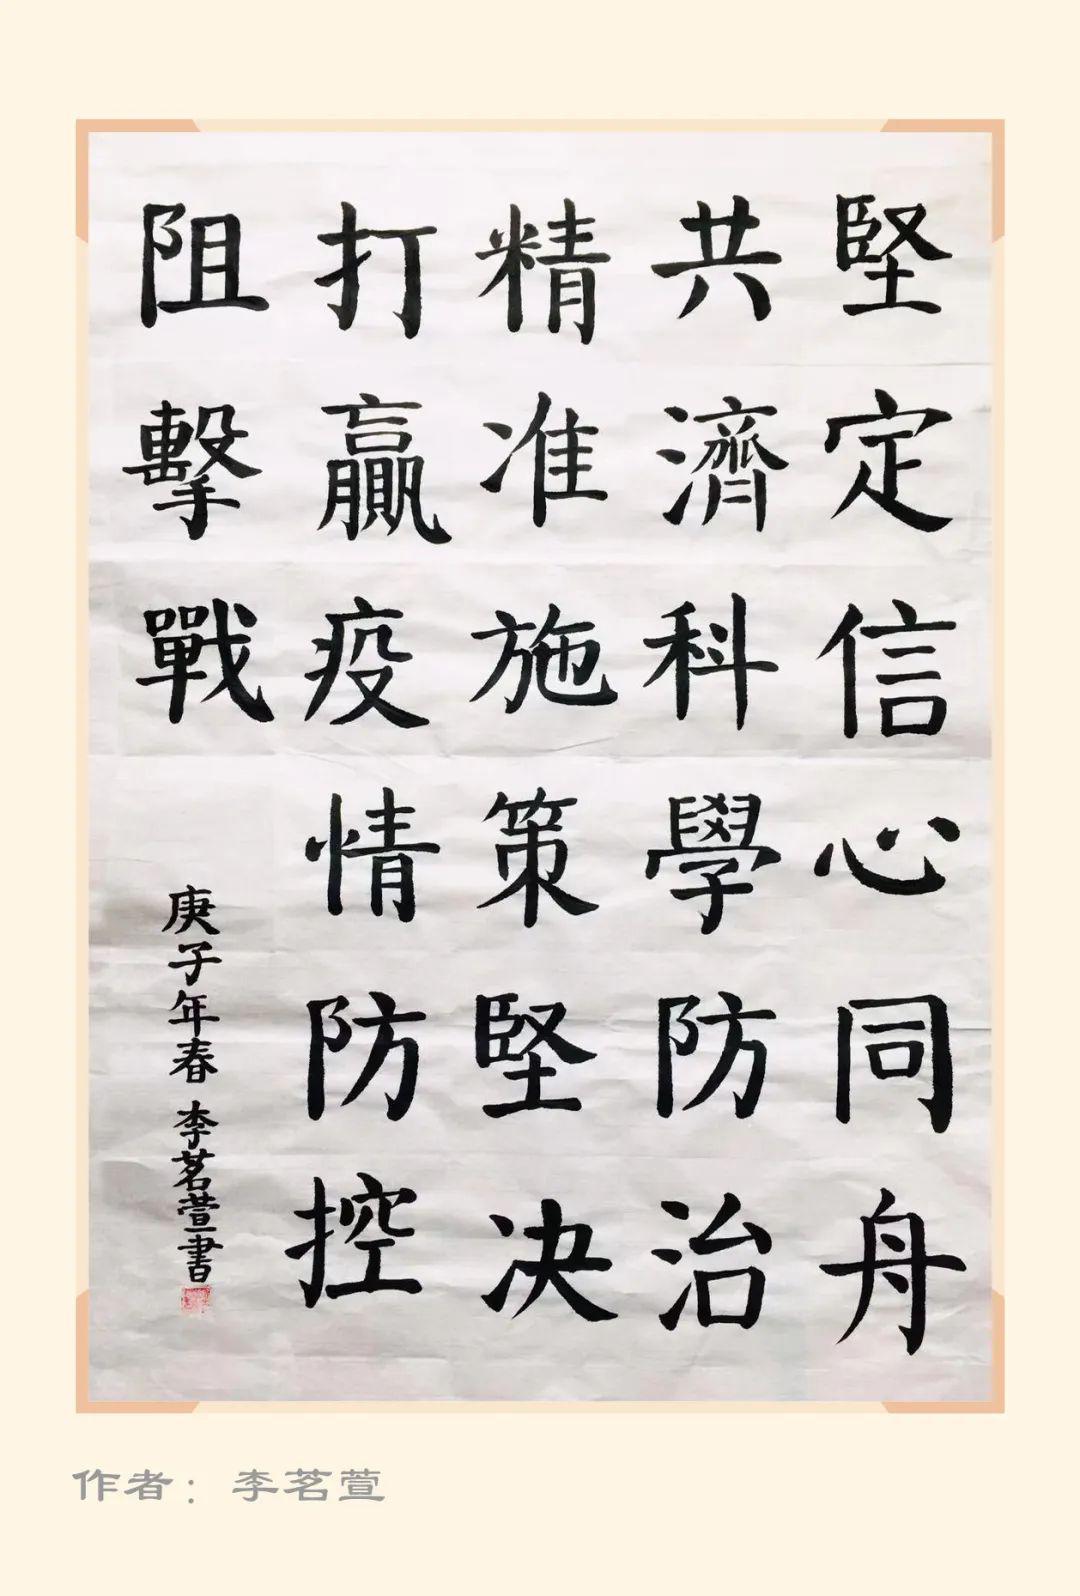 堅定信心同舟
共濟科學防治
精准施策堅决
打贏疫情防控
阻擊戰
庚子年春 李茗萱書
作者：李茗萱